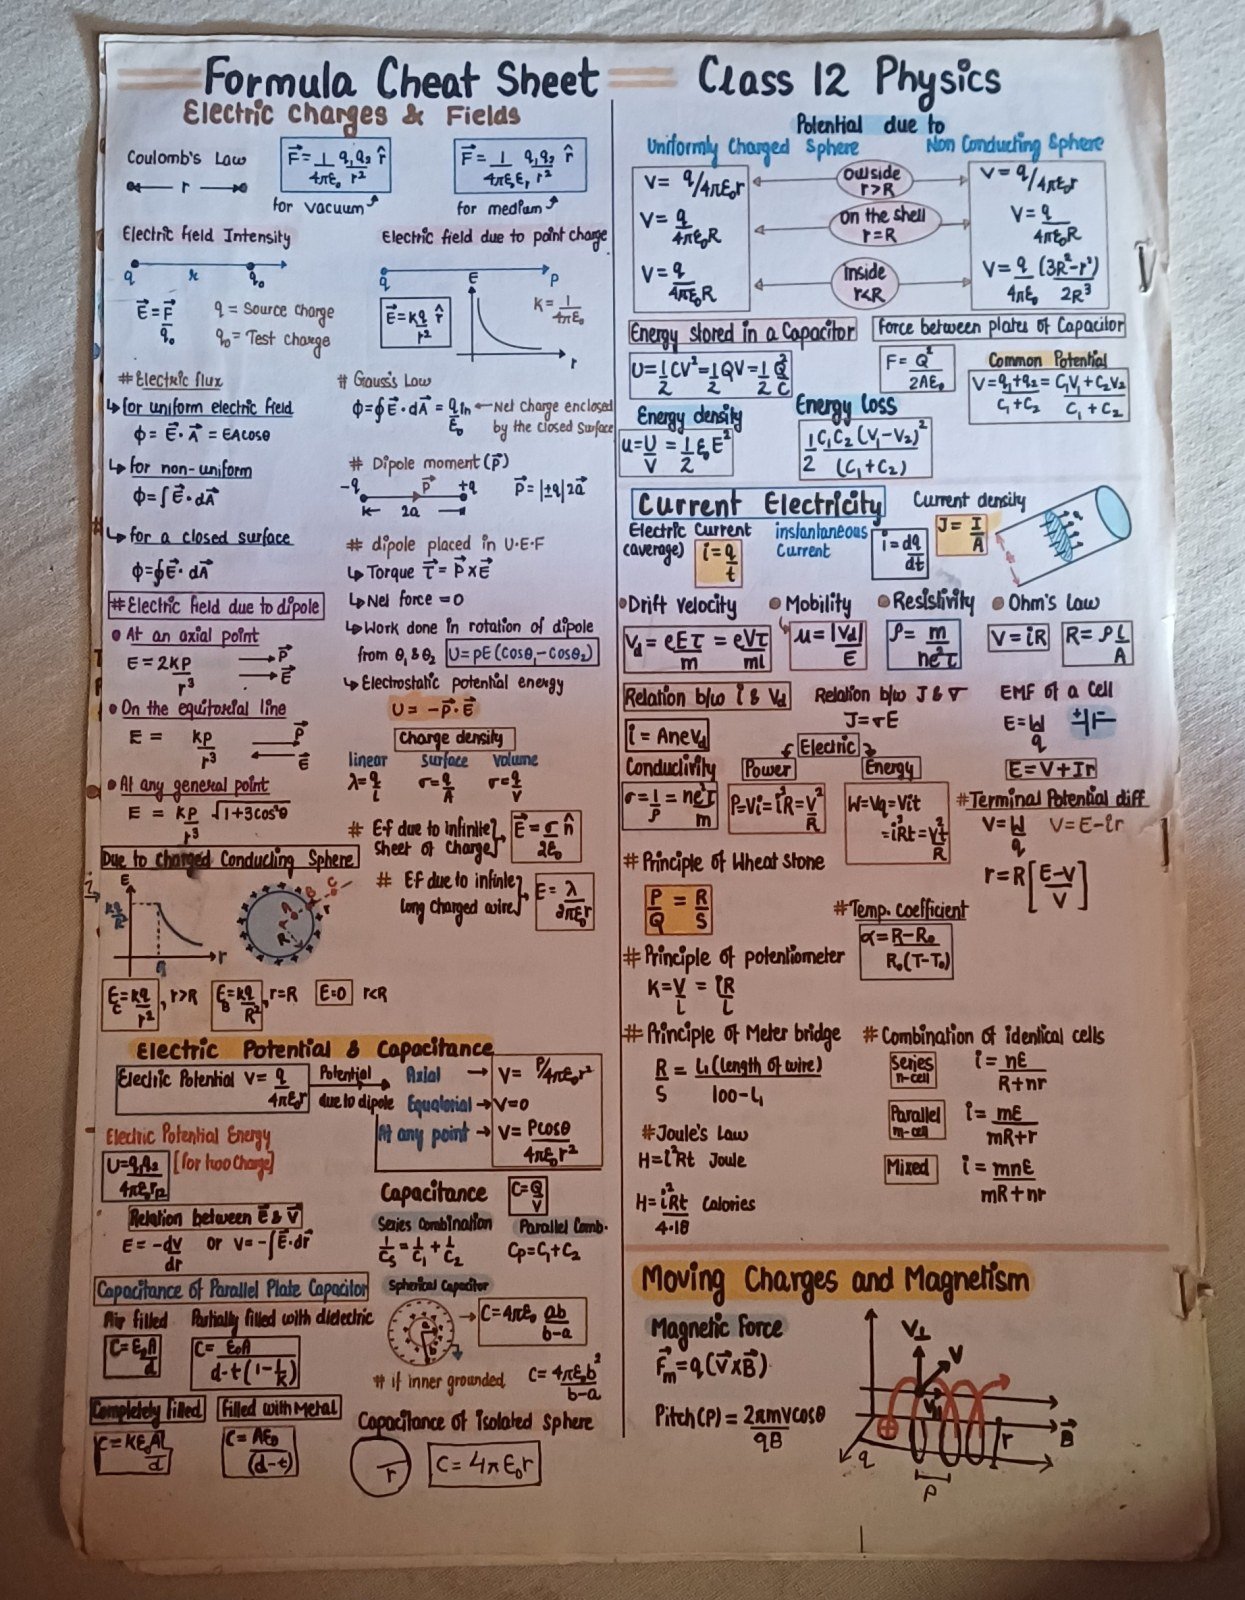 Formula Cheat Sheet
Class 12 Physics
Electric Charges & Fields
Coulomb's Law
r
F⃗ = 1/4πε₀ q₁q₂/r² r̂
for vacuum
F⃗ = 1/4πε₀εᵣ q₁q₂/r² r̂
for medium
Electric field Intensity
q r q₀
E⃗ = F⃗/q₀
q = Source charge
q₀ = Test charge
Electric field due to point charge
q P
E⃗ = kq/r² r̂
E
r
K = 1/4πε₀
#Electric flux
↳ for uniform electric field
ϕ = E⃗·A⃗ = EAcosθ
↳ for non-uniform
ϕ = ∫E⃗·dA⃗
↳ for a closed surface
ϕ = ∮E⃗·dA⃗
# Gauss's Law
ϕ = ∮E⃗·dA⃗ = qin/ε₀ ← Net Charge enclosed
by the closed surface
# Dipole moment (P⃗)
-q P⃗ +q
2a
P⃗ = |±q|2a⃗
# dipole placed in U·E·F
↳ Torque τ⃗ = P⃗×E⃗
↳ Net force = 0
↳ Work done in rotation of dipole
from θ₁ & θ₂ U = pE(cosθ₁-cosθ₂)
↳ Electrostatic potential energy
U = -P⃗·E⃗
#Electric field due to dipole
• At an axial point
E = 2kp/r³
P⃗
E⃗
• On the equitorial line
E = kp/r³
P⃗
E⃗
• At any general point
E = kp/r³ √1+3cos²θ
Charge density
linear surface volume
λ = q/l σ = q/A σ = q/V
# E·f due to infinite
Sheet of Charge
E⃗ = σ/2ε₀ n̂
# E·f due to infinite
long charged wire
E = λ/2πε₀r
Due to charged Conducting Sphere
E
kq/R²
r
C
B
A
R
E_C = kq/r², r>R
E_B = kq/R², r=R
E=0 r<R
Electric Potential & Capacitance
Electric Potential V = q/4πε₀r
Potential
due to dipole
Axial → V = P/4πε₀r²
Equatorial → V=0
At any point → V = Pcosθ/4πε₀r²
Electric Potential Energy
U = q₁q₂/4πε₀r₁₂ [for two Charge]
Relation between E⃗ & V⃗
E = -dv/dr or V = -∫E⃗·dr⃗
Capacitance C = Q/V
Series Combination
1/Cs = 1/C₁ + 1/C₂
Parallel Comb.
Cp = C₁+C₂
Capacitance of Parallel Plate Capacitor
Air filled
C = ε₀A/d
Partially filled with dielectric
C = ε₀A/d-t(1-1/K)
Completely filled
C = Kε₀A/d
Filled with Metal
C = Aε₀/(d-t)
Spherical Capacitor
C = 4πε₀ ab/b-a
# if inner grounded C = 4πε₀b²/b-a
Capacitance of isolated sphere
r
C = 4πε₀r
Potential due to
Uniformly Charged Sphere
Non Conducting Sphere
V = q/4πε₀r
outside
r>R
V = q/4πε₀r
V = q/4πε₀R
on the shell
r=R
V = q/4πε₀R
V = q/4πε₀R
Inside
r<R
V = q/4πε₀ (3R²-r²)/2R³
Energy stored in a Capacitor
U = 1/2 CV² = 1/2 QV = 1/2 Q²/C
Force between plates of Capacitor
F = Q²/2Aε₀
Common Potential
V = q₁+q₂/C₁+C₂ = C₁V₁+C₂V₂/C₁+C₂
Energy density
u = U/V = 1/2 ε₀E²
Energy loss
1/2 C₁C₂(V₁-V₂)²/(C₁+C₂)
Current Electricity
Electric Current
(average) i = q/t
instantaneous
Current
i = dq/dt
Current density
J = I/A
• Drift Velocity
Vd = eEτ/m = eVτ/ml
• Mobility
u = |Vd|/E
• Resistivity
ρ = m/ne²τ
• Ohm's Law
V = iR
R = ρL/A
Relation b/w i & Vd
i = AneVd
Relation b/w J & σ
J = σE
EMF of a Cell
E = W/q
E = V+Ir
Conductivity
σ = 1/ρ = ne²τ/m
Electric
Power
P = Vi = i²R = V²/R
Energy
W = Vq = Vit
= i²Rt = V²t/R
#Terminal Potential diff
V = W/q V = E-ir
r = R[E-V/V]
# Principle of Wheat stone
P/Q = R/S
#Temp. coefficient
α = R-R₀/R₀(T-T₀)
# Principle of potentiometer
K = V/L = iR/L
# Principle of Meter bridge
R/S = L₁(length of wire)/100-L₁
# Combination of identical cells
Series
n-cell
i = nE/R+nr
Parallel
m-cell
i = mE/mR+r
Mixed
i = mnE/mR+nr
#Joule's Law
H = i²Rt Joule
H = i²Rt/4.18 Calories
Moving Charges and Magnetism
Magnetic Force
F⃗m = q(V⃗×B⃗)
Pitch(P) = 2πmvcosθ/qB
V⊥
V
V||
B⃗
r
q
P